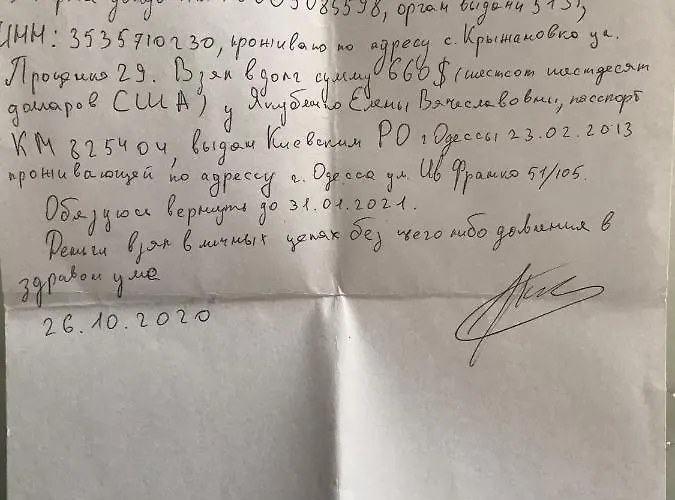 085598, орган выдачи 5151,
ИНН: 3535710230, проживаю по адресу с. Крыжановка ул.
Проценко 29. Взял в долг сумму 660$ (шестсот шестдесят
долларов США) у Якубенко Елены Вячеславовны, пасспорт
КМ 825404, выдан Киевским РО г Одессы 23.02.2013
проживающей по адрессу г. Одесса ул. Ив Франко 51/105.
Обязуюсь вернуть до 31.01.2021.
Деньги взял в личных целях без чего либо давления в
здравом уме
26.10.2020